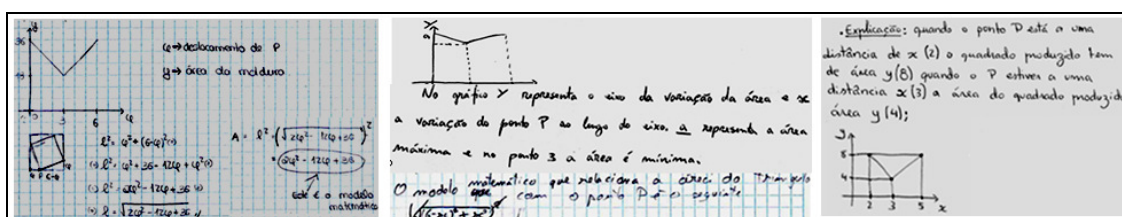 y
36
18
0
3
6
φ
φ → deslocamento de P
y → área da moldura
φ P 6-φ
l² = φ² + (6-φ)² (=)
(=) l² = φ² + 36 - 12φ + φ² (=)
(=) l² = 2φ² - 12φ + 36 (=)
(=) l = √2φ² - 12φ + 36
A = l² = (√2φ² - 12φ + 36)²
= 2φ² - 12φ + 36
este é o modelo
matemático
Y
a
3
No gráfico Y representa o eixo da variação da área e x
a variação do ponto P ao longo do eixo. a representa a área
máxima e no ponto 3 a área é mínima.
O modelo matemático que relaciona a do triângulo
com o ponto P é o seguinte
. Explicação: quando o ponto P está a uma
distância de x (2) o quadrado produzido tem
de área y(8) quando o P estiver a uma
distância x(3) a área do quadrado produzido
área y(4);
y
8
4
2
3
5
x